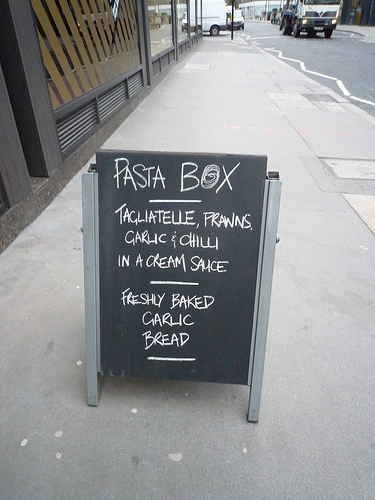 PASTA BOX
TAGLIATELLE, PRAWNS,
GARLIC & CHILLI
IN A CREAM SAUCE
FRESHLY BAKED
GARLIC
BREAD